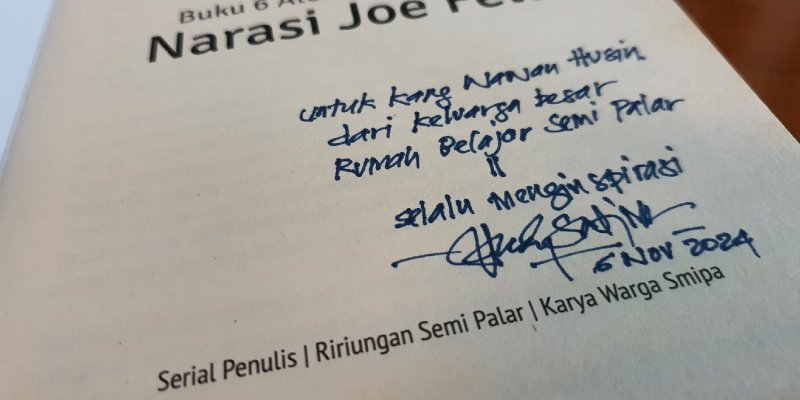 Buku 6
Narasi Joe
untuk Kang Nawan Husin
dari keluarga besar
Rumah Belajar Semi Palar
selalu Menginspirasi
6 Nov 2024
Serial Penulis | Ririungan Semi Palar | Karya Warga Smipa